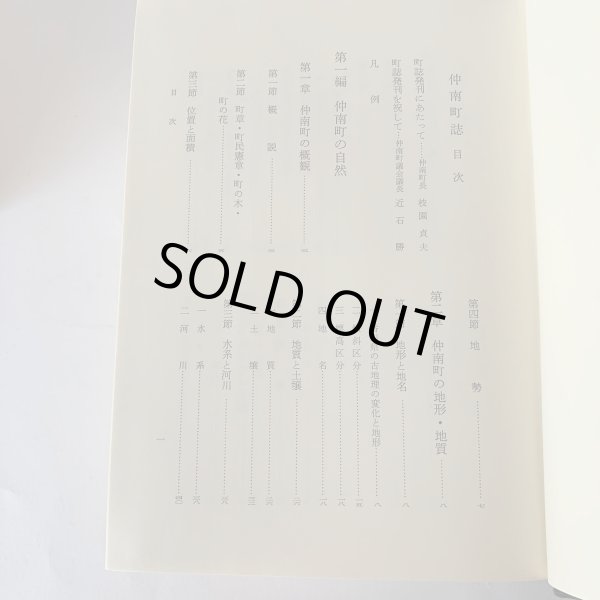 仲南町誌 目次
町誌発刊にあたって……仲南町長 枝園貞夫
町誌発刊を祝して…仲南町議会議長 近石勝
凡例
第一編 仲南町の自然
第一章 仲南町の概観
第一節 概説
第二節 町章・町民憲章・町の木・
町の花
第三節 位置と面積
目次
第四節 地勢……七
仲南町の地形・地質……八
地形と地名……八
の古地理の変化と地形……八
区分
三 区分……一八
四 地名……一八
地質と土壌
地質
土壌
第三節 水系と河川
一 水系
二 河川
一
SOLD OUT